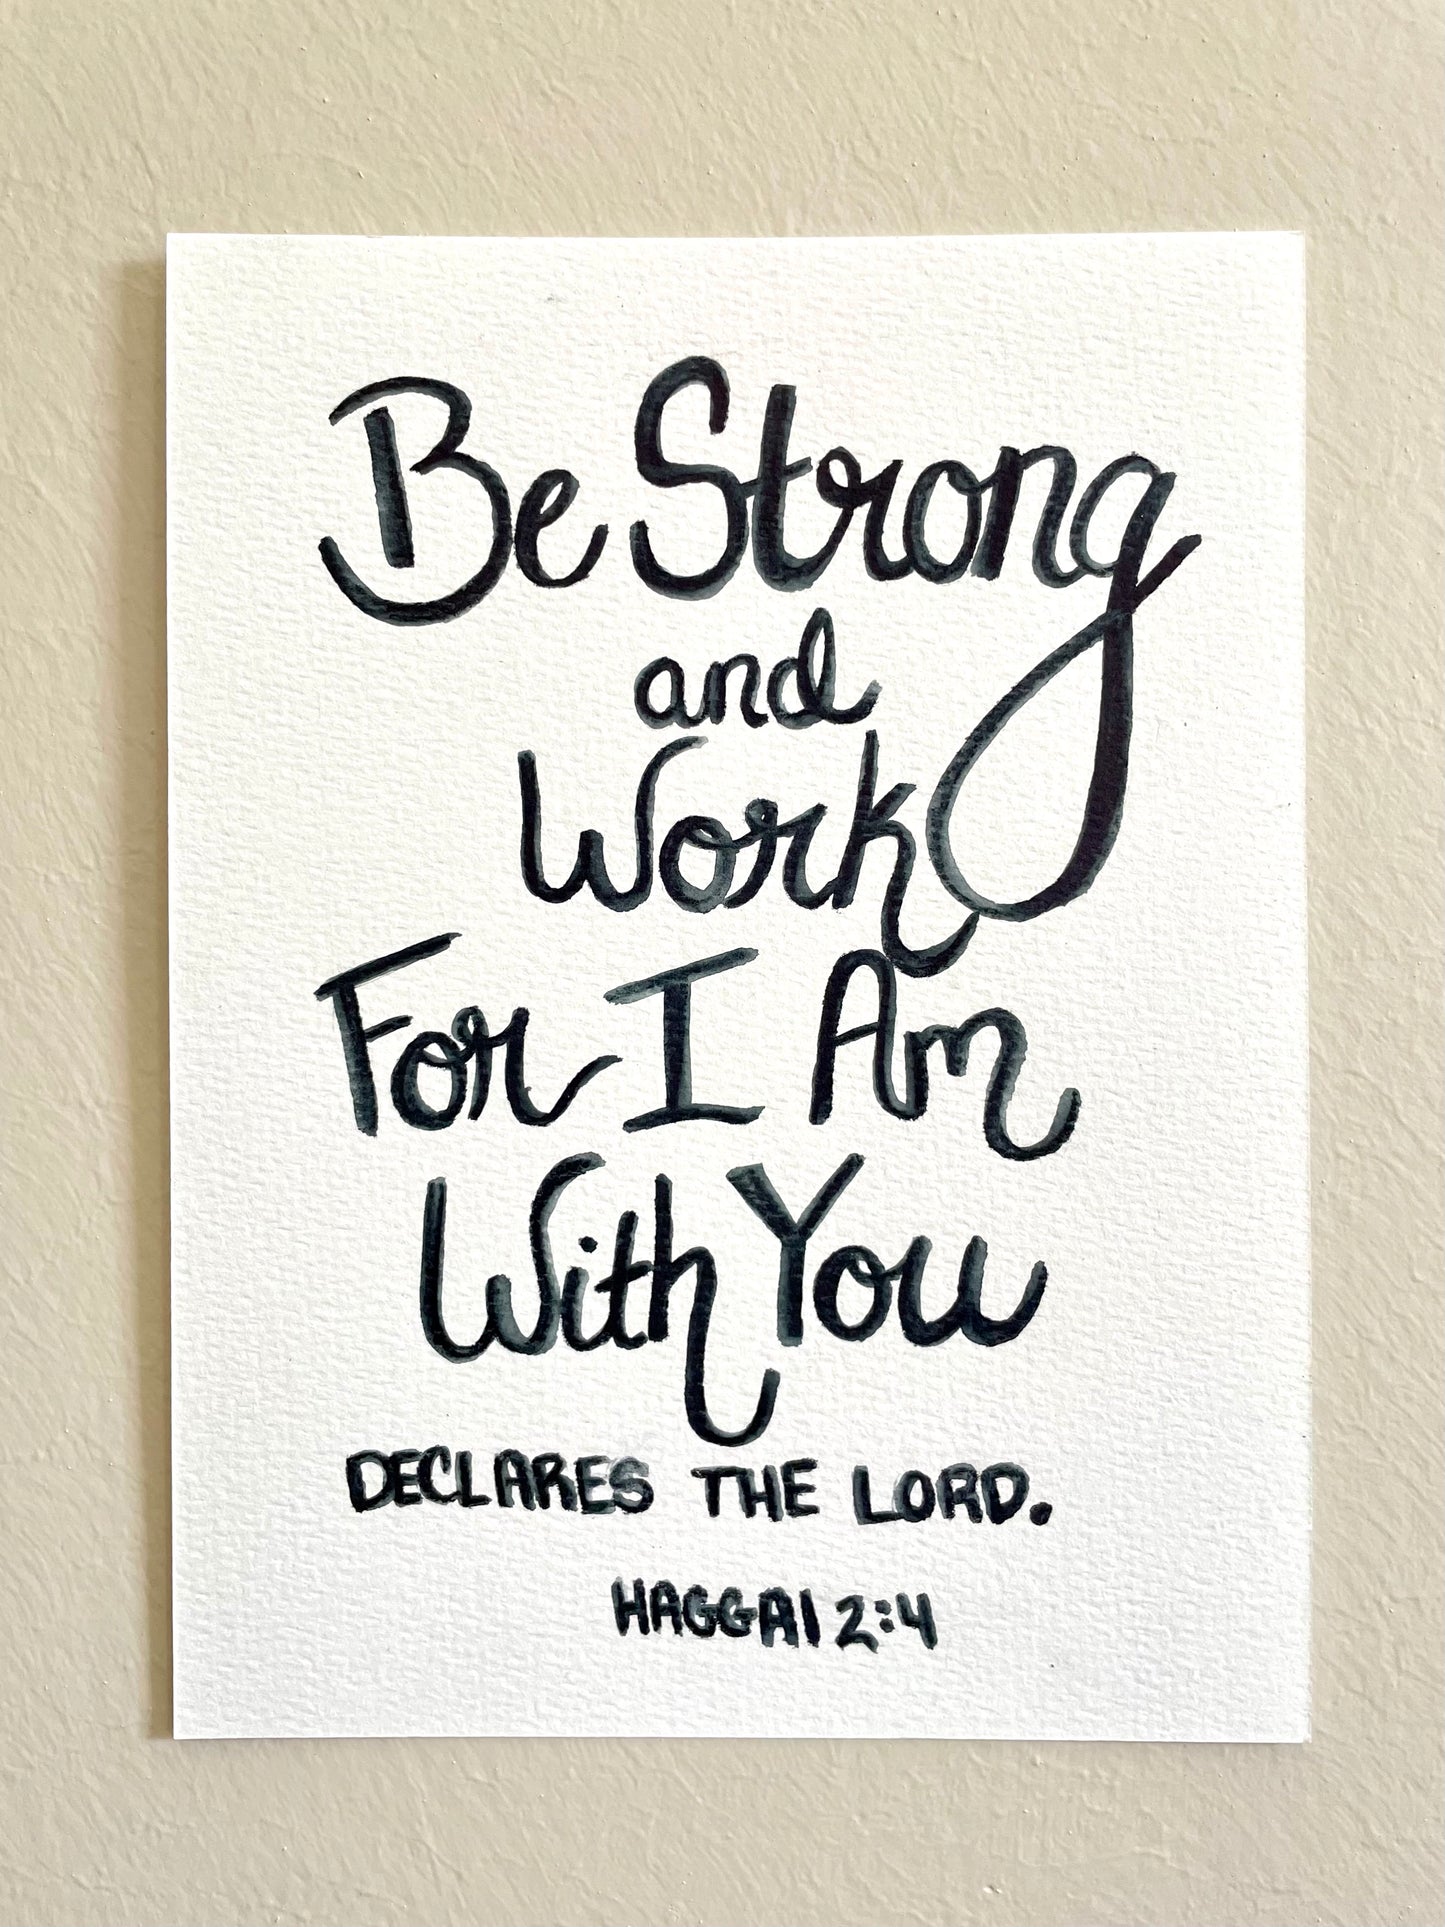 Be Strong
and
Work
For I Am
With You
DECLARES THE LORD.
HAGGAI 2:4